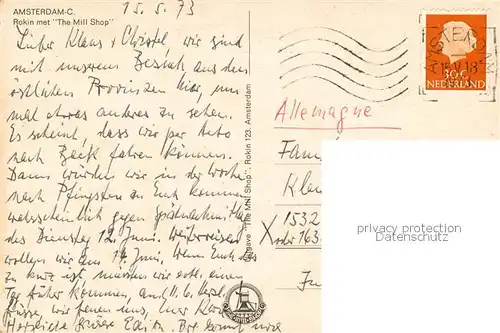 15.5.73
AMSTERDAM-C.
Rokin met "The Mill Shop"
Lieber Klaus + Christel, wir sind
mit unserem Besuch aus den
östlichen Provinzen hier, um
mal etwas anderes zu sehen.
Es scheint, dass wir per Auto
nach Zeick fahren können.
Dann würden wir in der Woche
nach Pfingsten zu Euch kommen
wahrscheinlich gegen
des Dienstag 12. Juni. Weiterreisen
wollen wir am 14. Juni. Wenn Euch das
zu kurz ist, müssten wir evtl. einen
Tag früher kommen, am 11.6. Herzl.
Grüsse, wir freuen uns,
Herzliche Grüsse
Uitgave "The Mill Shop", Rokin 123, Amsterdam
AMSTERDAM
15.V.18
30 C
NEDERLAND
Allemagne
Fam
Kla
1532
X oder 163
privacy protection
www.